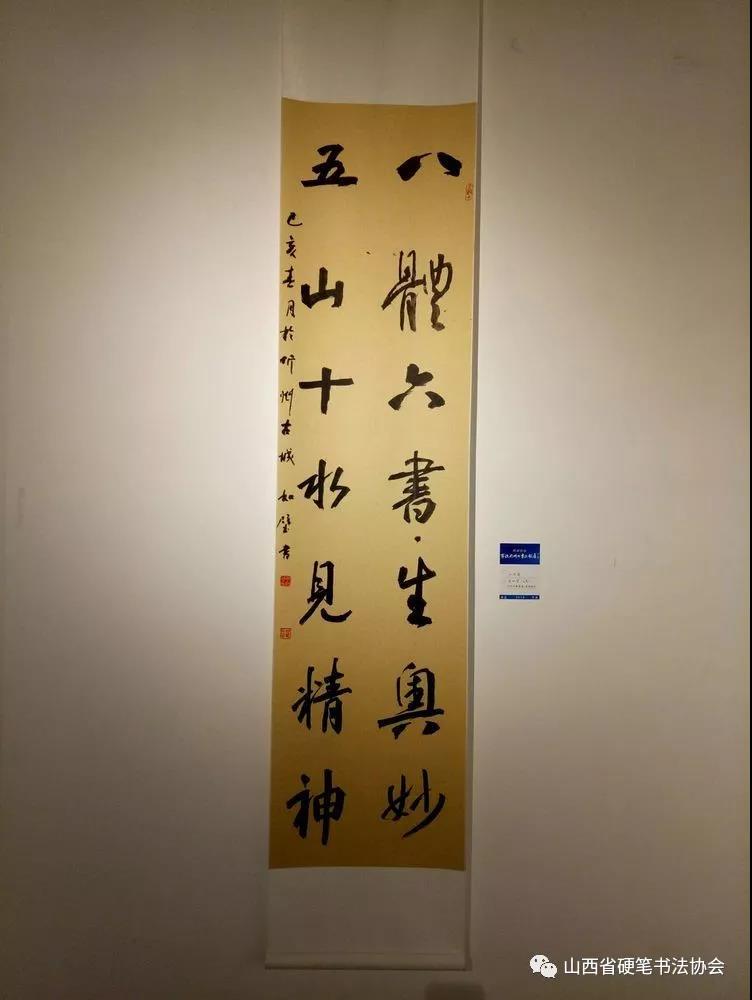 八體六書生奧妙
五山十水見精神
己亥春月於忻州古城 如璧書
山西省硬笔书法协会